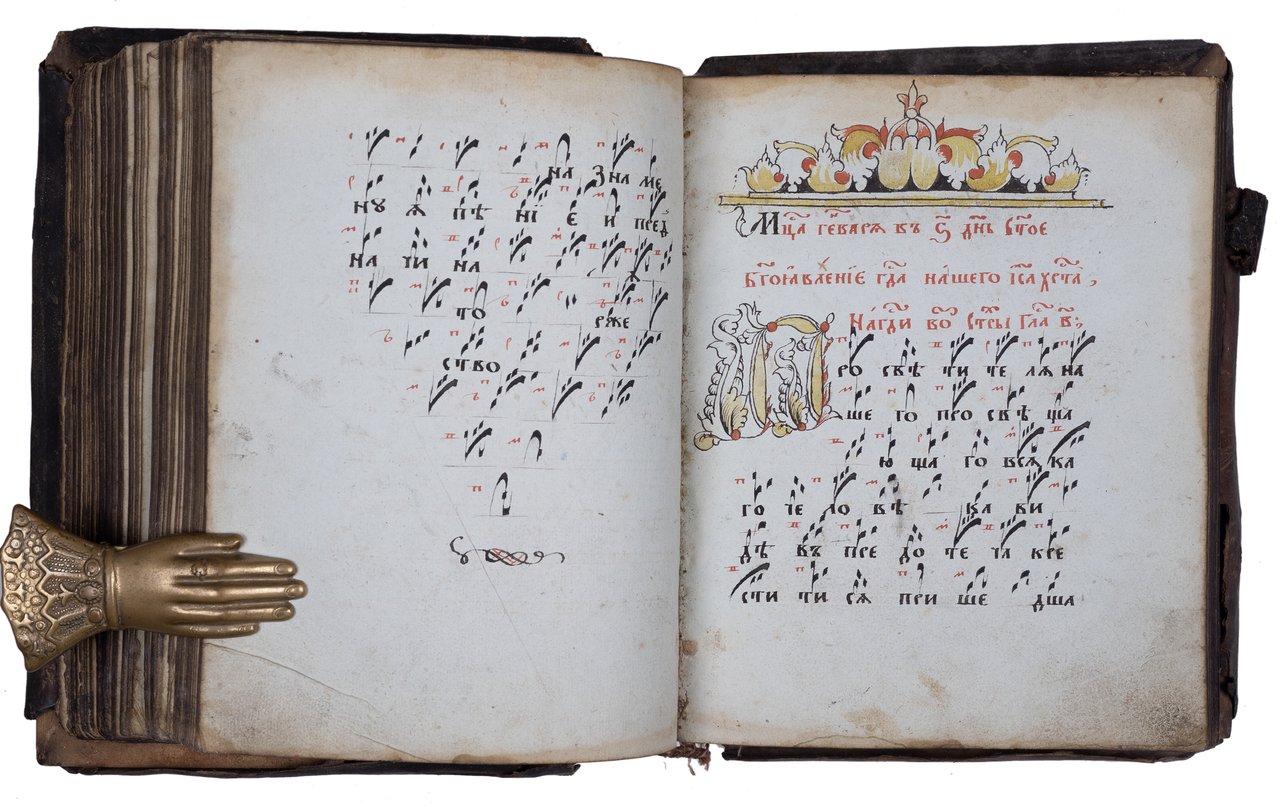 на зна ме
ну ѧ пѣ нї є и пред
на чи на
то рже
ство
Мц҃а генваря въ ѕ҃ днь ст҃ое
бг҃оявленїе гд҃а нашего їс҃а хрс҃та,
На гд҃и во стры гла в҃:
П ро свѣ ти те ля на
ше го про свѣ ща
ю ща го вся ка
го че ло вѣ ка ви
дѣ въ пре до те ча кре
сти ти ся при ше дша